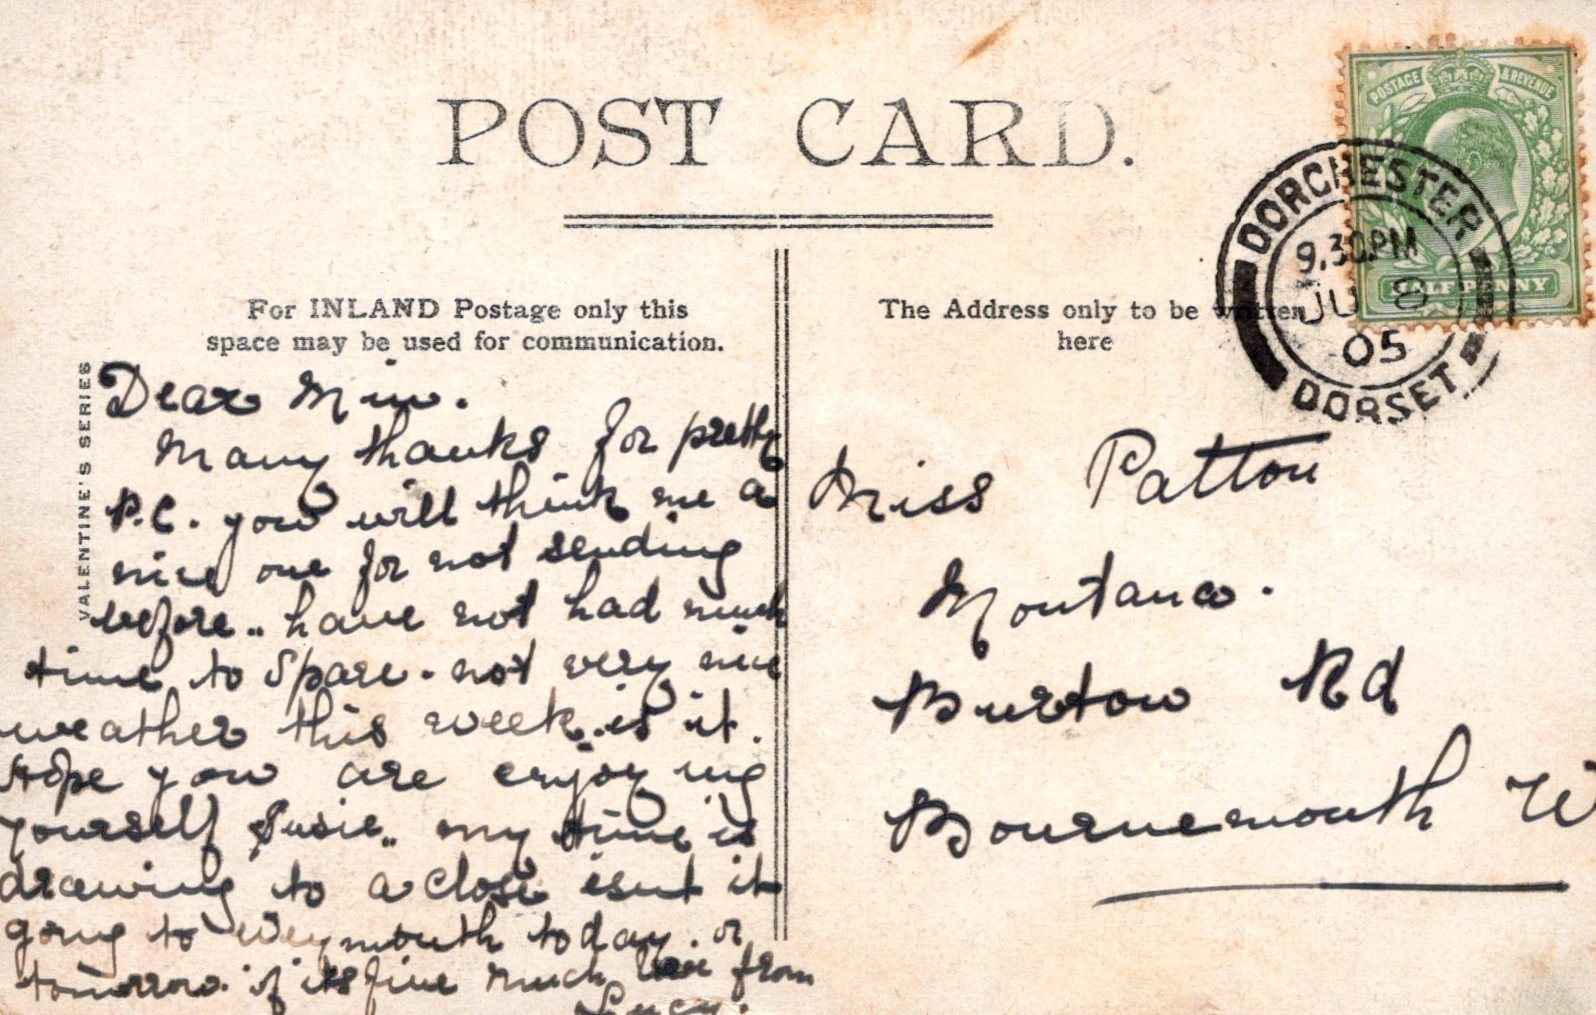 POST CARD.
POSTAGE & REVENUE
HALF PENNY
DORCHESTER
9.30PM
JU 8
05
DORSET
For INLAND Postage only this
space may be used for communication.
The Address only to be written
here
VALENTINE'S SERIES
Dear Min.
Many thanks for pretty
P.C. you will think me a
nice one for not sending
before.. have not had much
time to spare. not very nice
weather this week.. is it.
Hope you are enjoying
yourself Susie.. my time is
drawing to a close isnt it
going to Weymouth today. or
tomorrow. if its fine much love from
Lucy.
Miss Patton
Montana.
Burton Rd
Bournemouth W